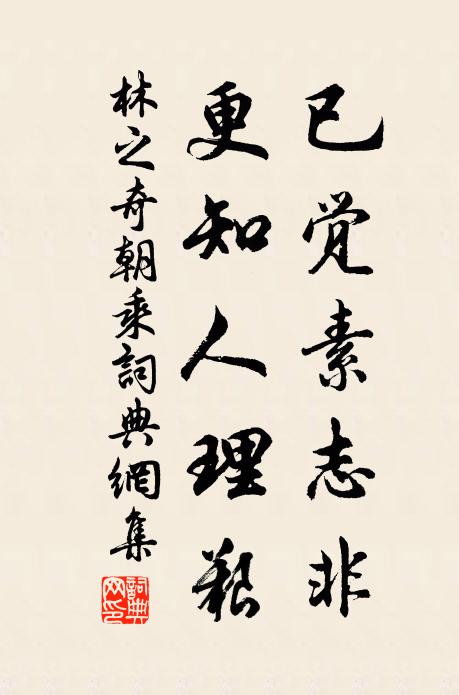 已觉素志非
更知人理艱
林之奇朝乘詞典網集
詞典網印